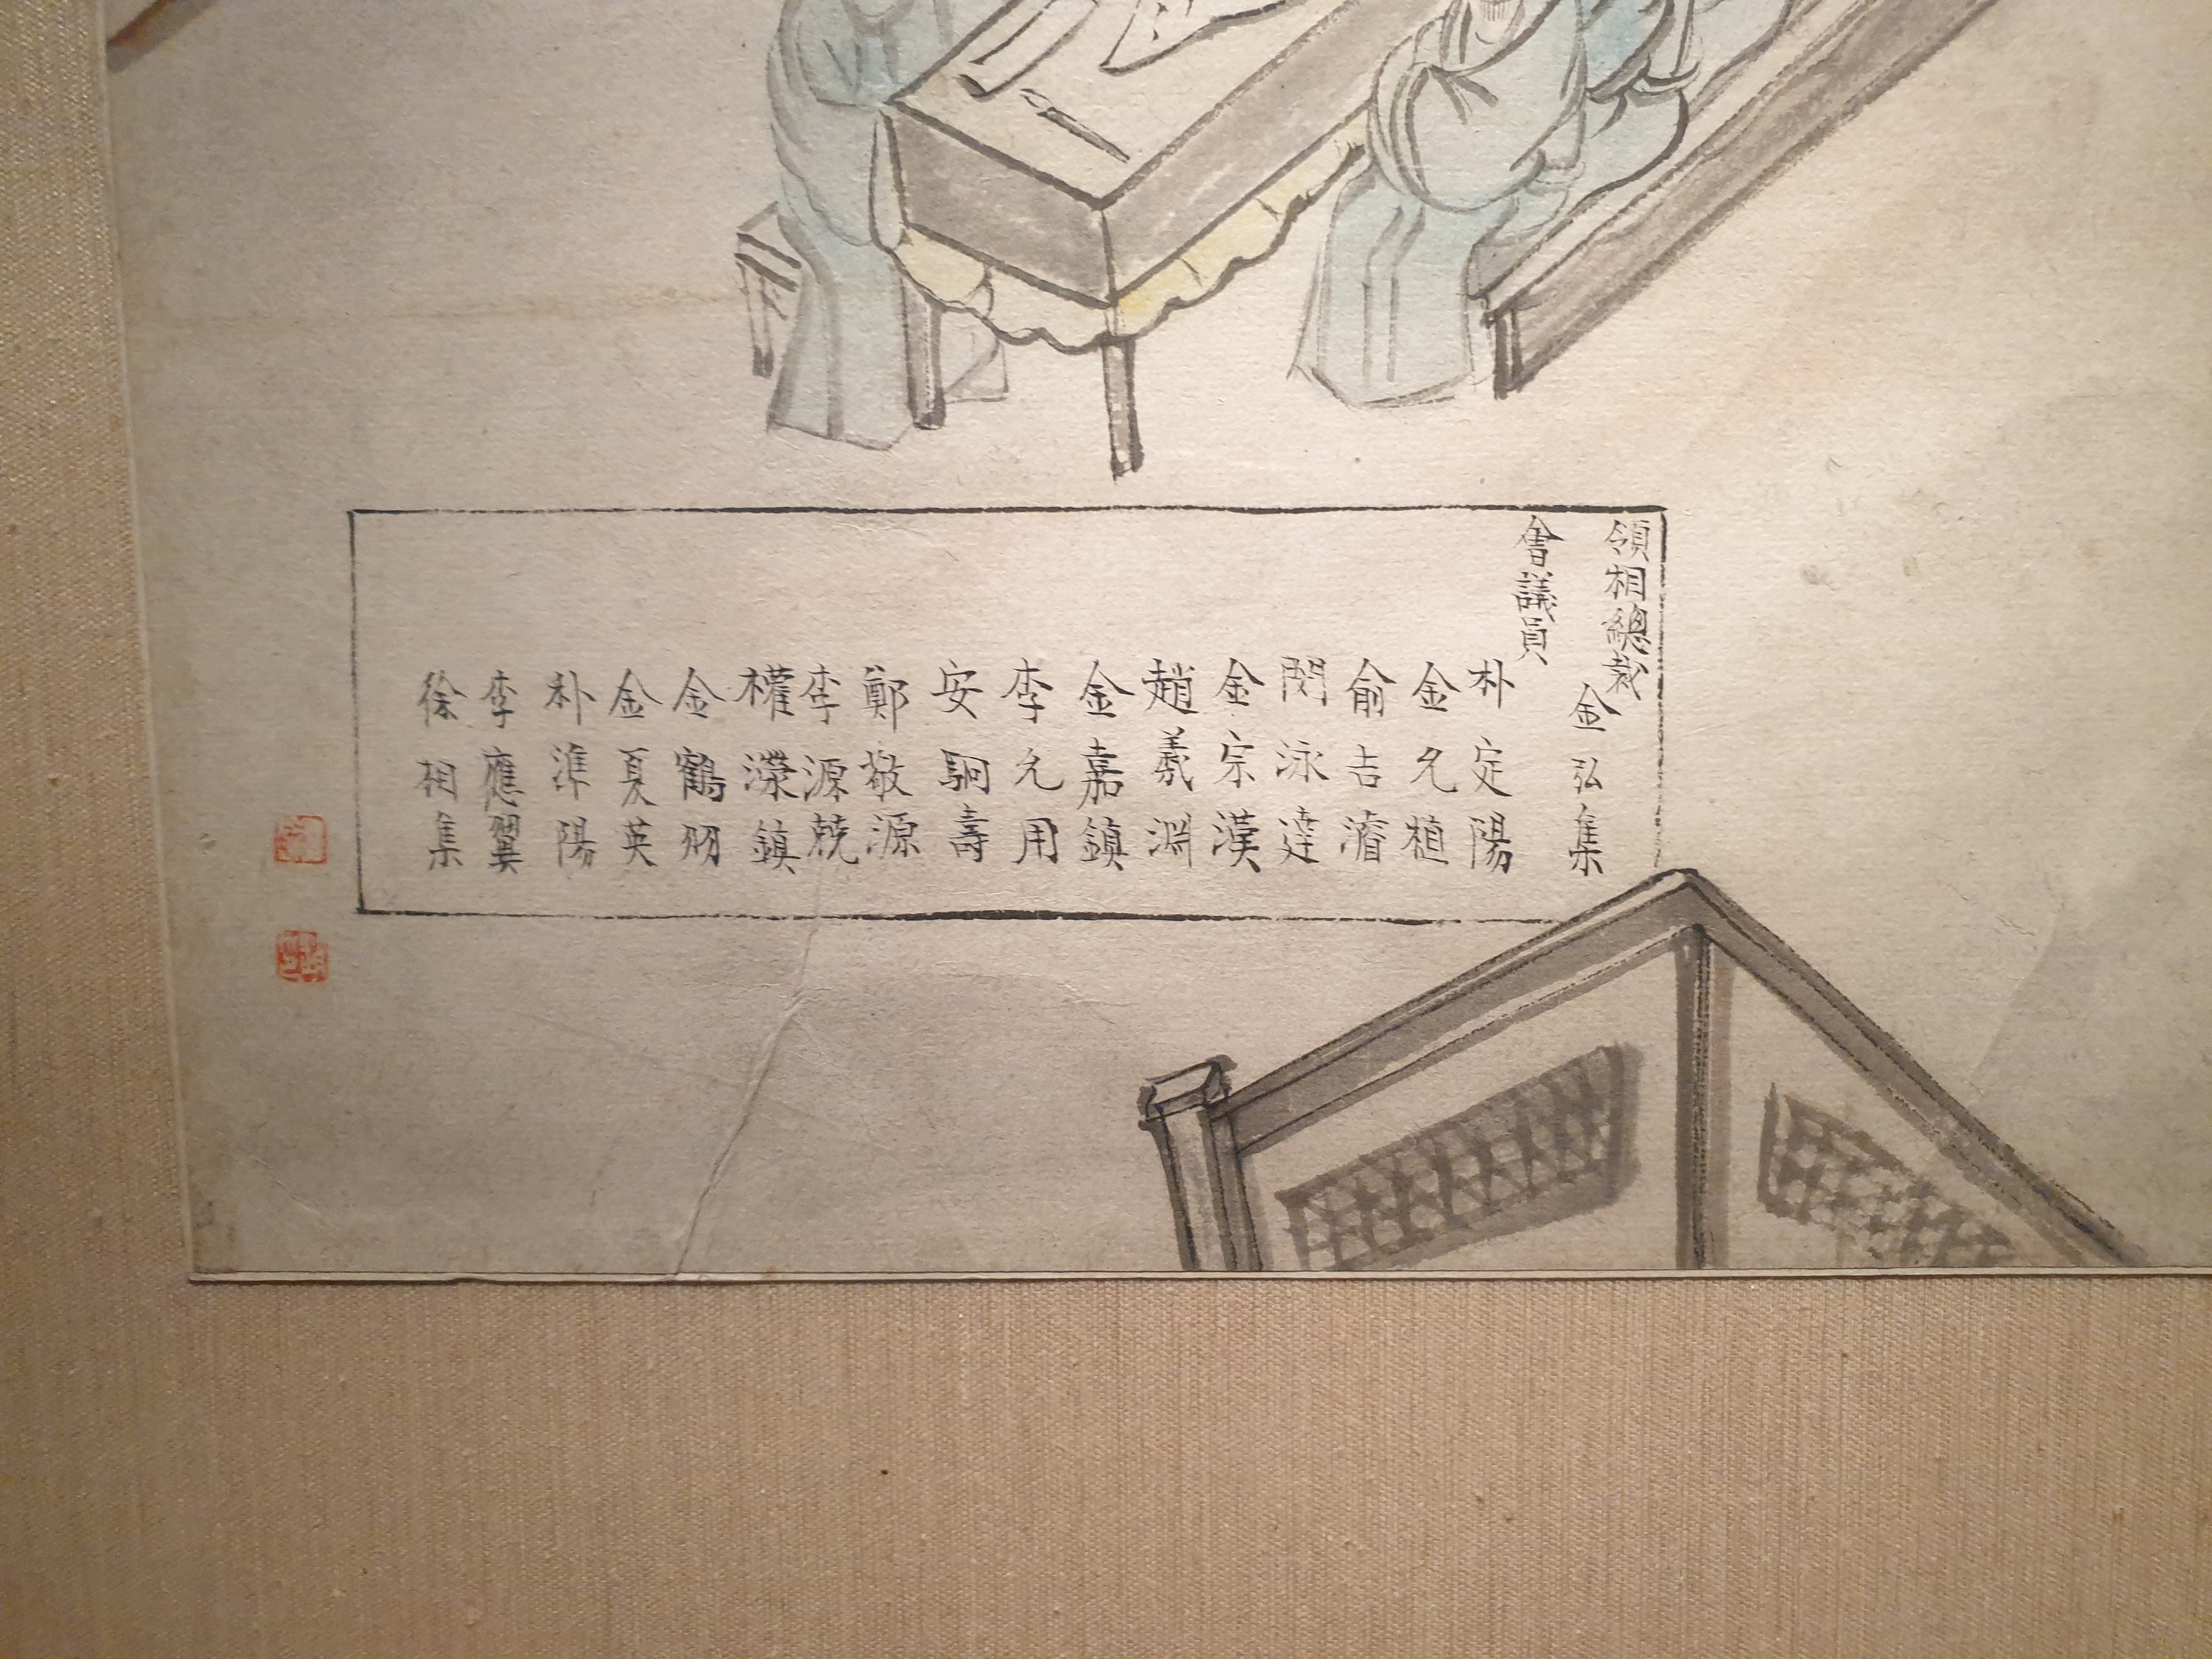 領相總裁
金弘集
會議員
朴定陽
金允植
俞吉濬
閔泳達
金宗漢
趙羲淵
金嘉鎮
李允用
安駉壽
鄭敬源
李源兢
權瀠鎮
金鶴羽
金夏英
朴準陽
李應翼
徐相集